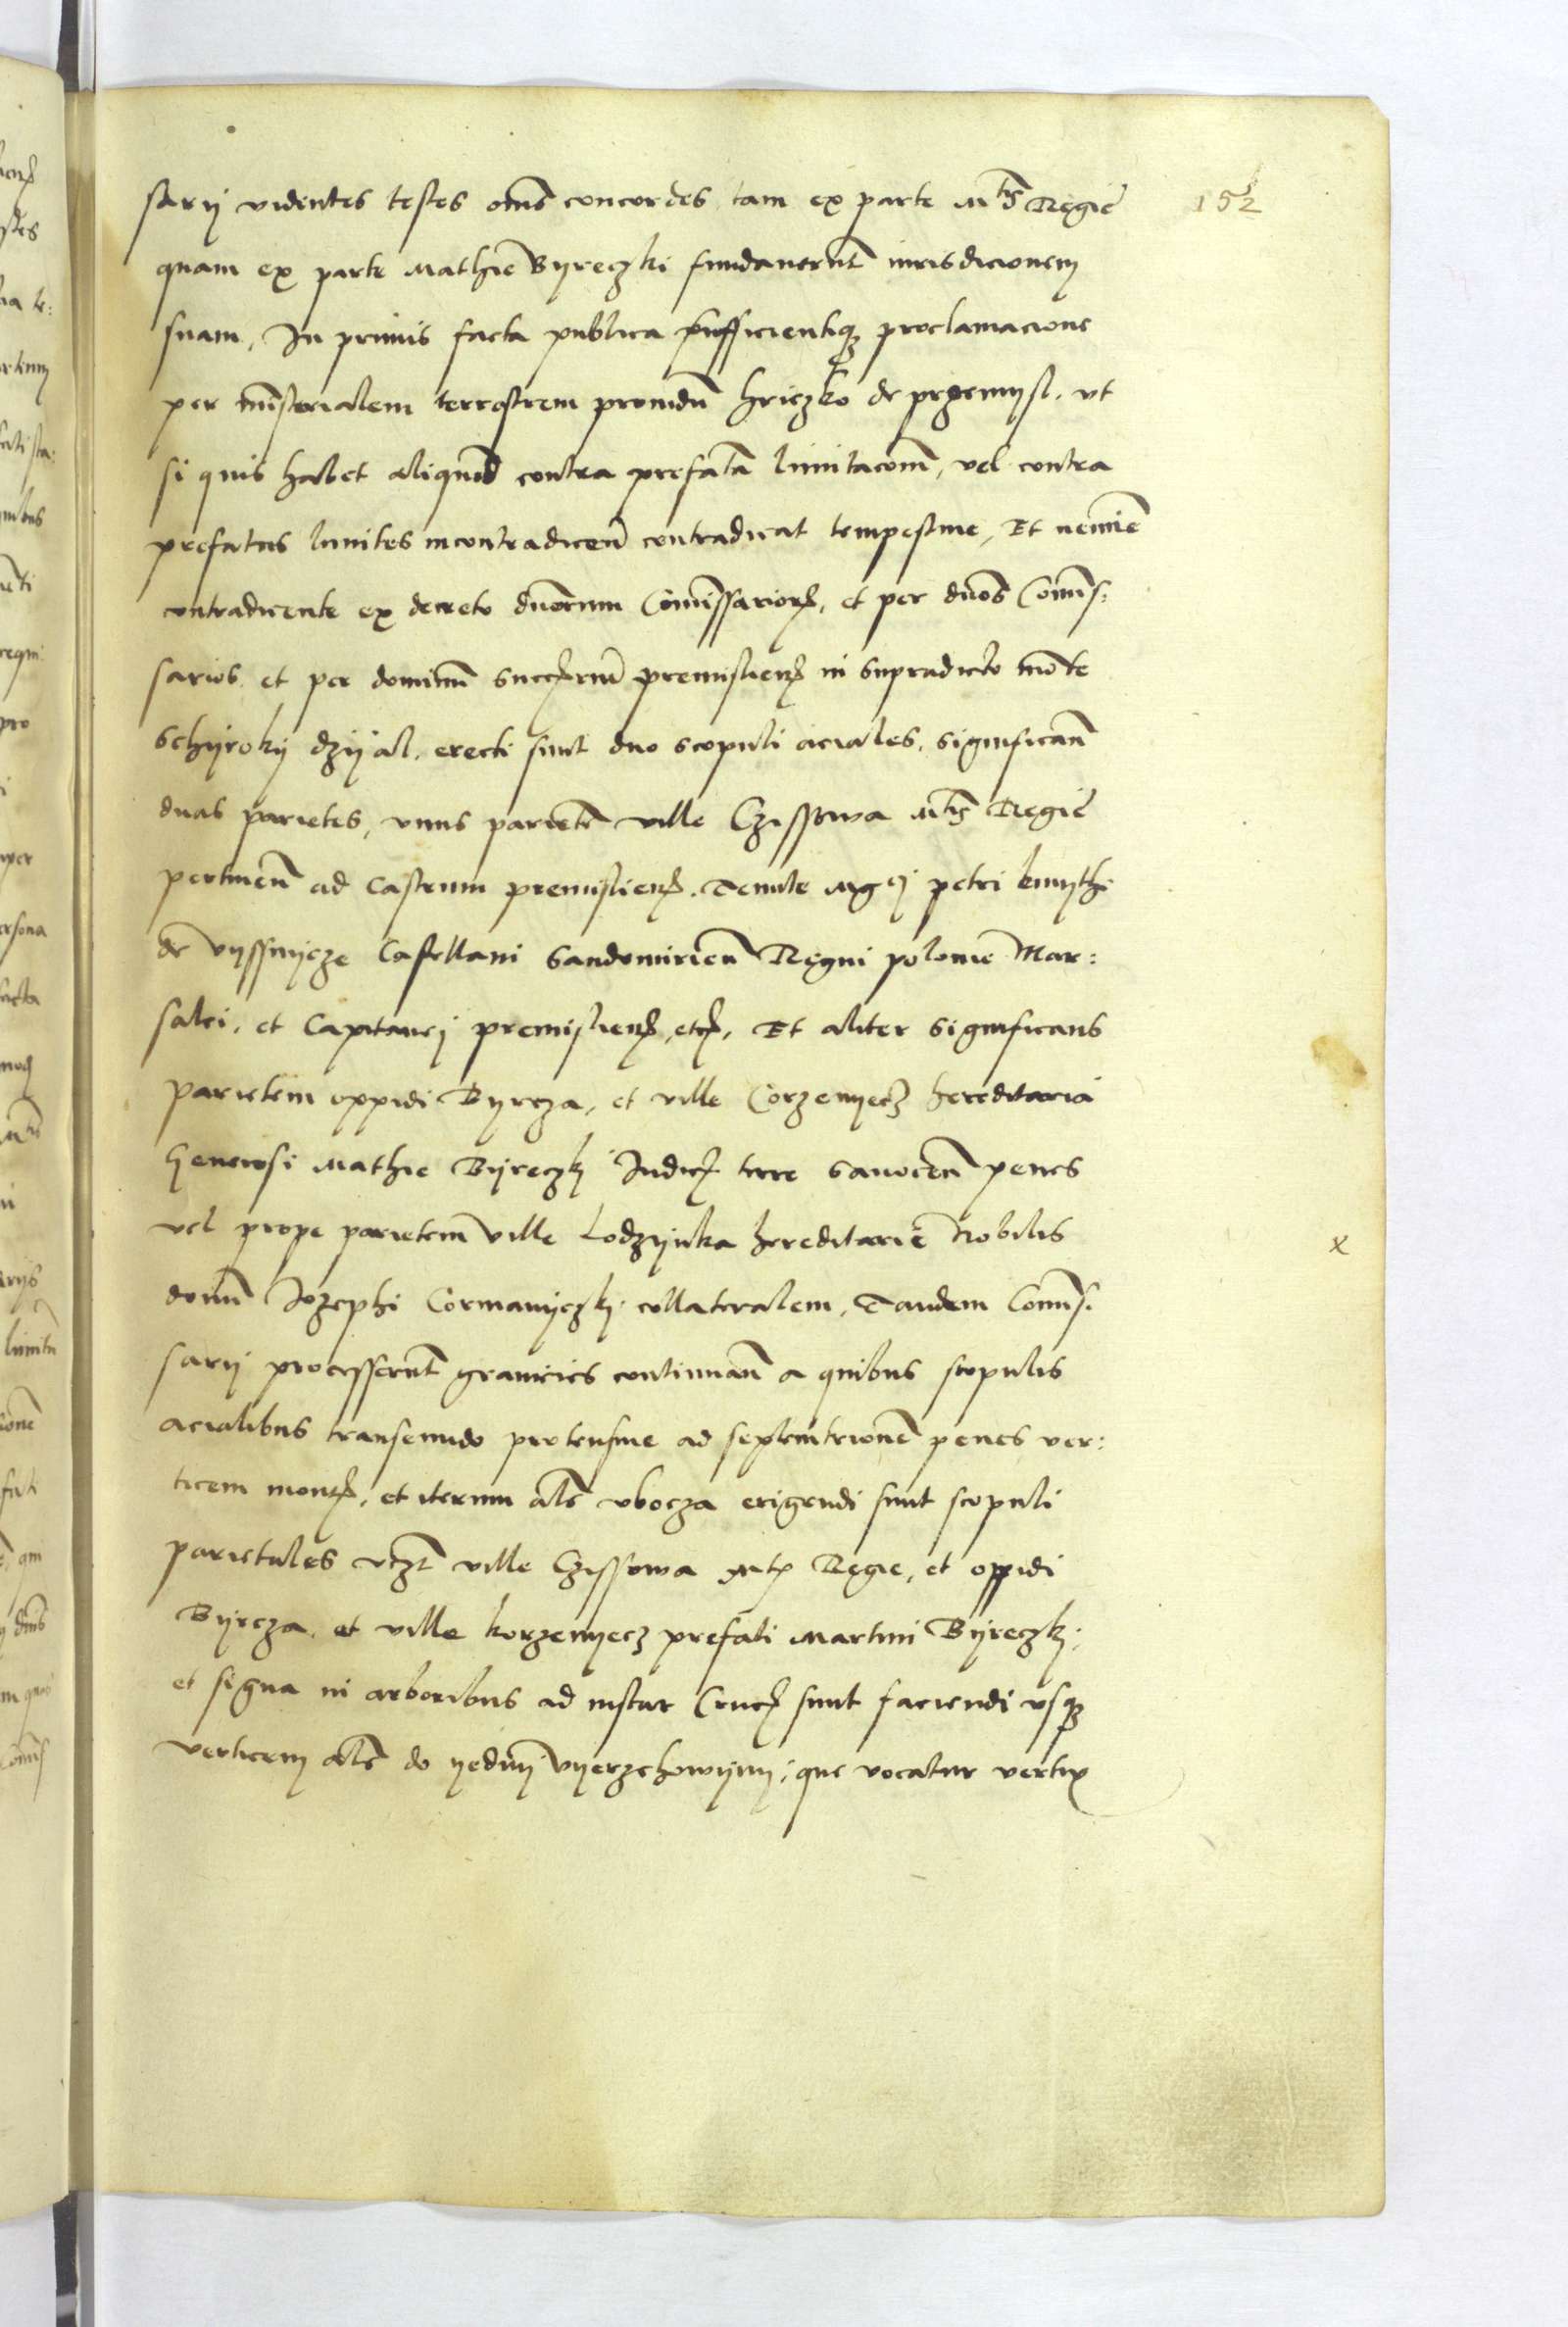 sarij videntes testes oms concordes tam ex parte Mtis Regie 152
quam ex parte Mathie Byreczki fundauerunt iurisdicionem
suam, In primis facta publica sufficientiqz proclamacione
per mnsterialem terrestrem prouidu hriczko de przemysl, vt
si quis habet aliquid contra prefata limitacom, vel contra
prefatas limites incontradicen contradicat tempestiue, Et nemie
contradicente ex decreto dnorum Comissarior, et per dnos Comis:
sarios et per dominu succ premislien in supradicto mote
Schyroky dzyal, erecti sunt duo scopuli aciales, significan
duas parietes, vnus pariete ville Czissowa Mtis Regie
pertinen ad Castrum premislien Tenute Mgci petri kmythi
de vyssnycze Castellani Sandomirien Regni polonie Mar:
salci, et Capitanej premislien, etc, Et aliter significans
parietem oppidi Byrcza, et ville Corzenyecz hereditaria
Generosi Mathie Byreczkj Judic terre Sanocen penes
vel prope parietem ville Lodzynka hereditarie Nobilis x
domi Jozephi Cormanyczkj collateralem, Tandem Comis.
sarij processerunt granicies continuan a quibus scopulis
acialibus transeundo protensiue ad septemtrione penes ver:
ticem mont, et iterum als vbocza erigendi sunt scopuli
parietales vczt ville Czissowa Mtis Regie, et oppidi
Byrcza et ville korzenyecz prefati Martini Byreczkj,
et signa in arboribus ad instar Cruc sunt faciendi vsqz
verticem als do yednej vyerzchowyny, que vocatur vertix